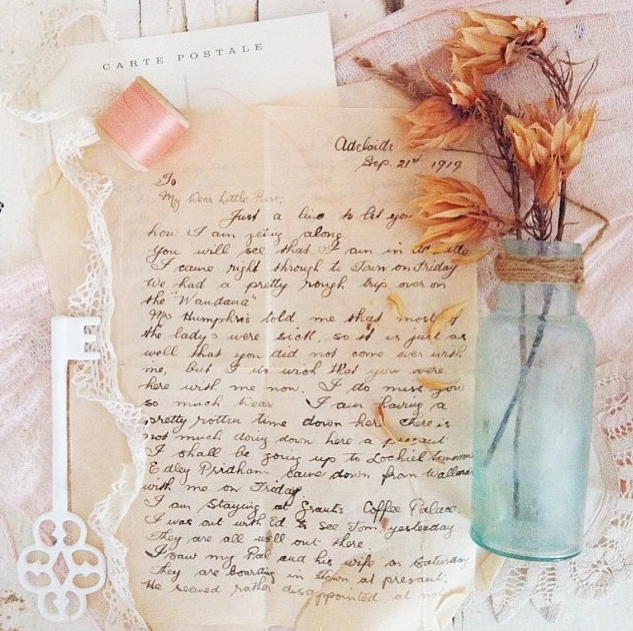 CARTE POSTALE
Adelaide
Sep. 21st 1919
To
My Dear Little
Just a line to let you
how I am going along.
You will see that I am in
I came right through to Town on Friday
We had a pretty rough trip over on
the "Wandana"
Mrs Humphris told me that most of
the lady's were sick, so it is just as
well that you did not come over with
me, but I do wish that you were
here with me now. I do miss you
so much Dear. I am having a
pretty rotten time down here there is
not much doing down here a presant
I shall be going up to Lochiel tomorrow
Edley Pridham came down from
with me on Friday.
I am staying at Grants Coffee Palace.
I was out with Ed to see Tom yesterday
They are all well out there.
I saw my Pal and his wife on Saturday
They are boarding in town at presant.
He seemed rather disappointed at not